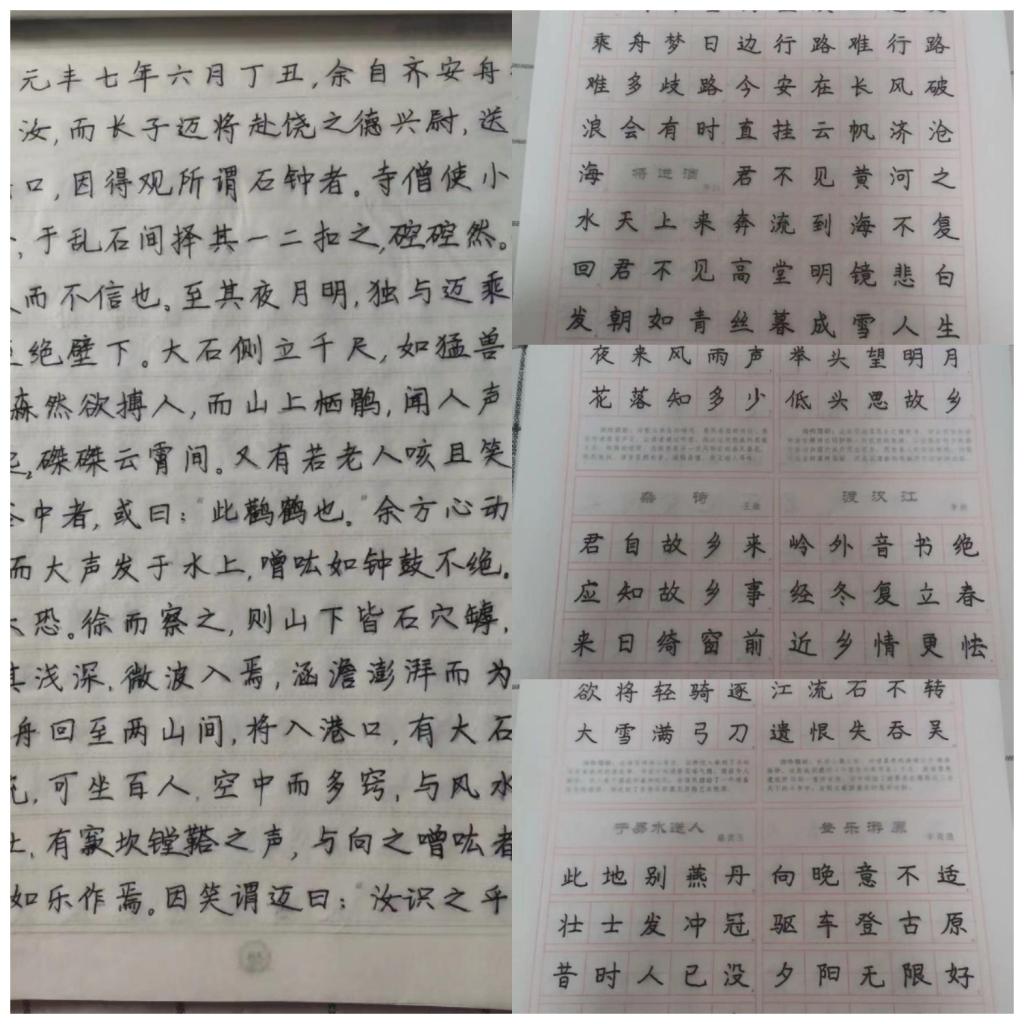 元丰七年六月丁丑,余自齐安舟
汝,而长子迈将赴饶之德兴尉,送
口,因得观所谓石钟者。寺僧使小
,于乱石间择其一二扣之,硿硿然。
而不信也。至其夜月明,独与迈乘
绝壁下。大石侧立千尺,如猛兽
森然欲搏人,而山上栖鹘,闻人声
磔磔云霄间。又有若老人咳且笑
中者,或曰:“此鹳鹤也。”余方心动
而大声发于水上,噌吰如钟鼓不绝。
恐。徐而察之,则山下皆石穴罅,
其浅深,微波入焉,涵澹澎湃而为
舟回至两山间,将入港口,有大石
,可坐百人,空中而多窍,与风水
,有窾坎镗鞳之声,与向之噌吰者
如乐作焉。因笑谓迈曰:“汝识之乎
乘舟梦日边行路难行路
难多歧路今安在长风破
浪会有时直挂云帆济沧
海 将进酒 君不见黄河之
水天上来奔流到海不复
回君不见高堂明镜悲白
发朝如青丝暮成雪人生
夜来风雨声 举头望明月
花落知多少 低头思故乡
杂诗 渡汉江
君自故乡来 岭外音书绝
应知故乡事 经冬复立春
来日绮窗前 近乡情更怯
欲将轻骑逐 江流石不转
大雪满弓刀 遗恨失吞吴
于易水送人 登乐游原
此地别燕丹 向晚意不适
壮士发冲冠 驱车登古原
昔时人已没 夕阳无限好